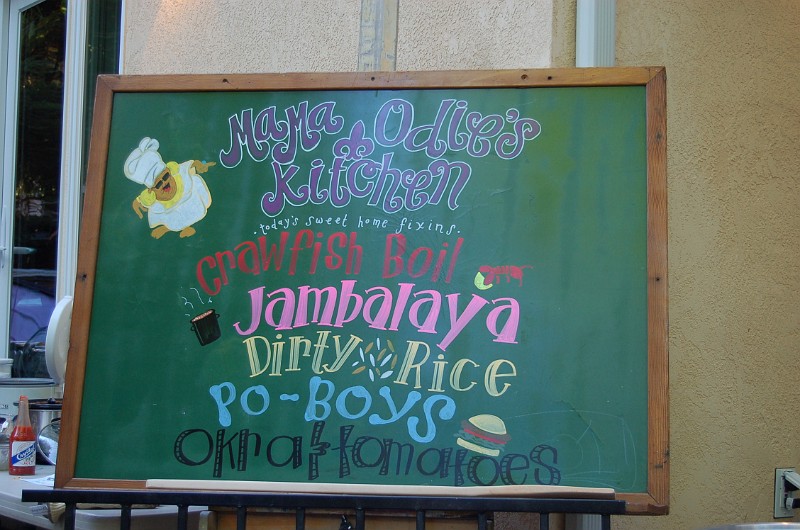 Mama Odie's
Kitchen
.today's sweet home fixins.
Crawfish Boil
Jambalaya
Dirty Rice
Po-Boys
Okra & tomatoes